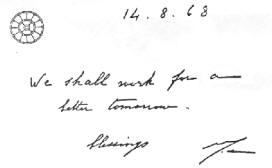 14.8.68
We shall work for a
better tomorrow.
blessings